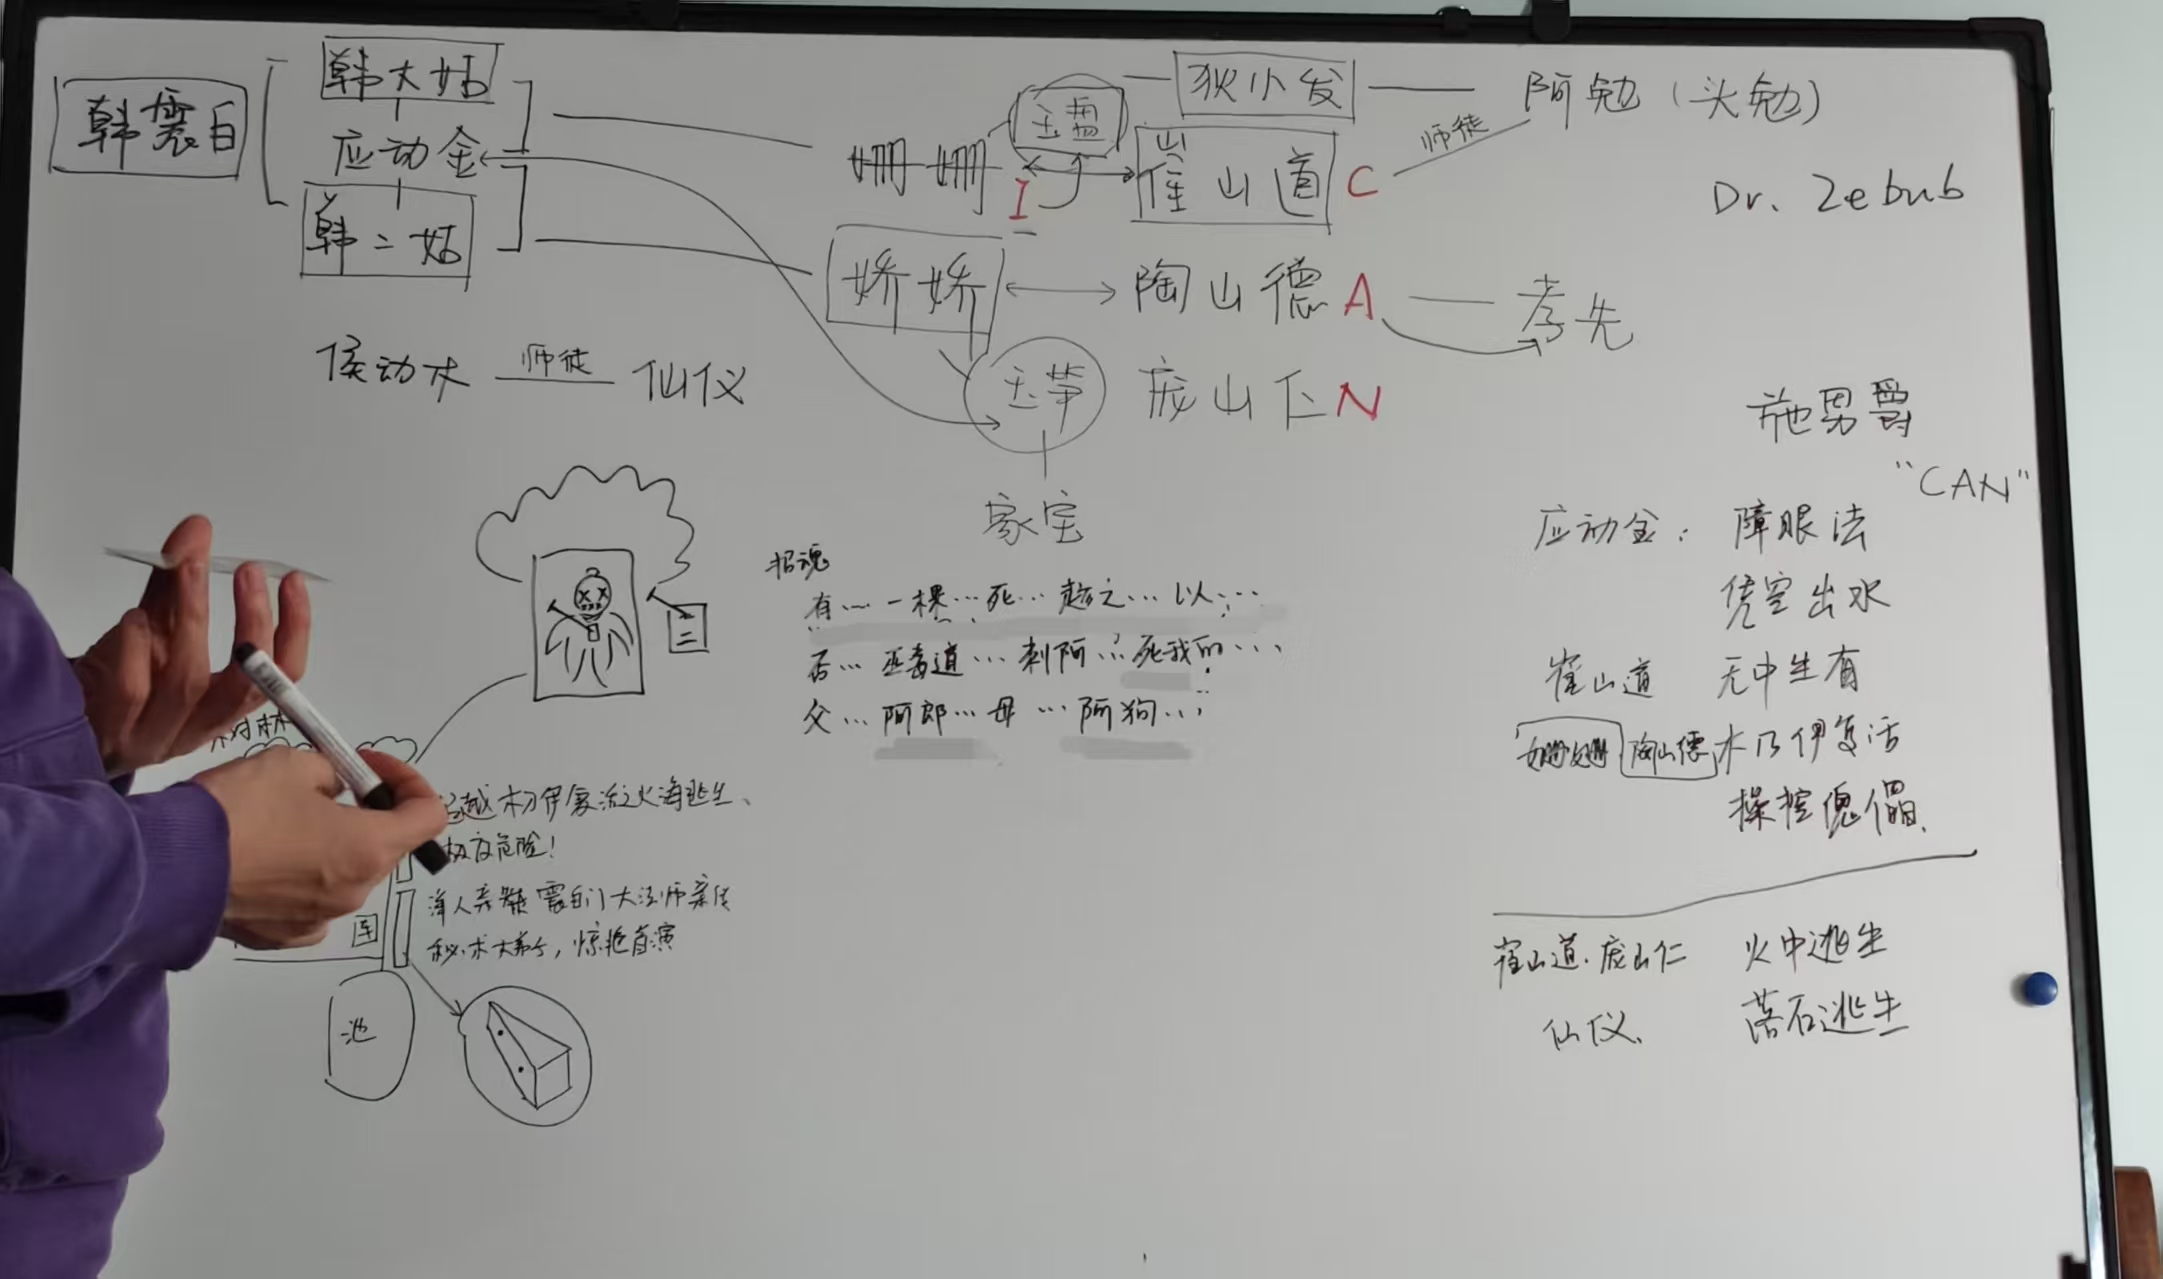 韩震白
韩大姑
应动金
韩二姑
侯动木 师徒 仙仪
狄小发
阿勉（头勉）
师徒
姗姗 I
崔山道 C
Dr. Zebub
娇娇
陶山德 A
孝先
庞山仁 N
家宝
施男爵
"CAN"
应动金： 障眼法
凭空出水
崔山道 无中生有
姗姗 陶山德 木乃伊复活
操控傀儡
崔山道. 庞山仁 火中逃生
仙仪. 落石逃生
招魂
有… 一棵… 死… 趁之… 以…
否… 巫毒道… 刺阿… 死我的…
父… 阿郎… 母… 阿狗…
二
树林
极度危险！
震白门大法师亲传
秘术大弟子，惊艳首演
池